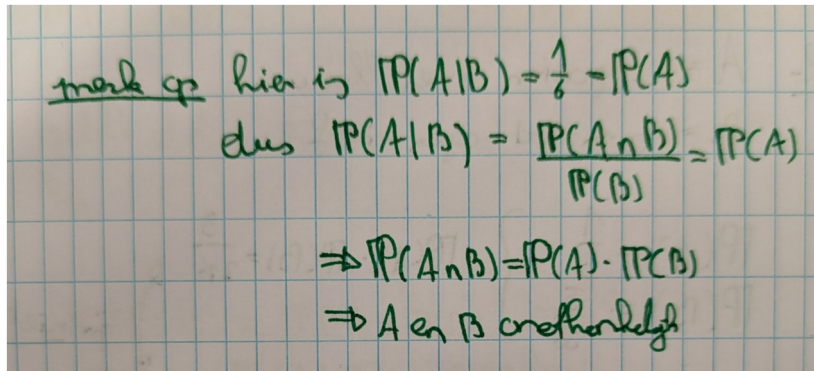 merk op hier is ℙ(A|B) = 1/6 = ℙ(A)
dus ℙ(A|B) = ℙ(A∩B)/ℙ(B) = ℙ(A)
⇒ ℙ(A∩B) = ℙ(A) · ℙ(B)
⇒ A en B onafhankelijk